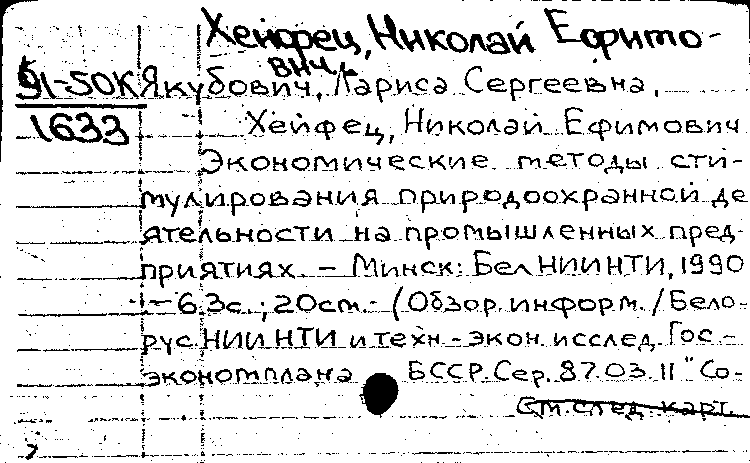 Хейфец, Николай Ефимо-
вич.
91-50К Якубович, Лариса Сергеевна,
1633 Хейфец, Николай Ефимович
Экономические методы сти-
мулирования природоохранной де
ятельности на промышленных пред-
приятиях. - Минск: БелНИИНТИ, 1990
- 63с.; 20см. - (Обзор. информ. / Бело-
рус НИИ НТИ и техн.-экон. исслед. Гос-
экономплана БССР. Сер. 87.03.11 "Со-
См. след. карт.